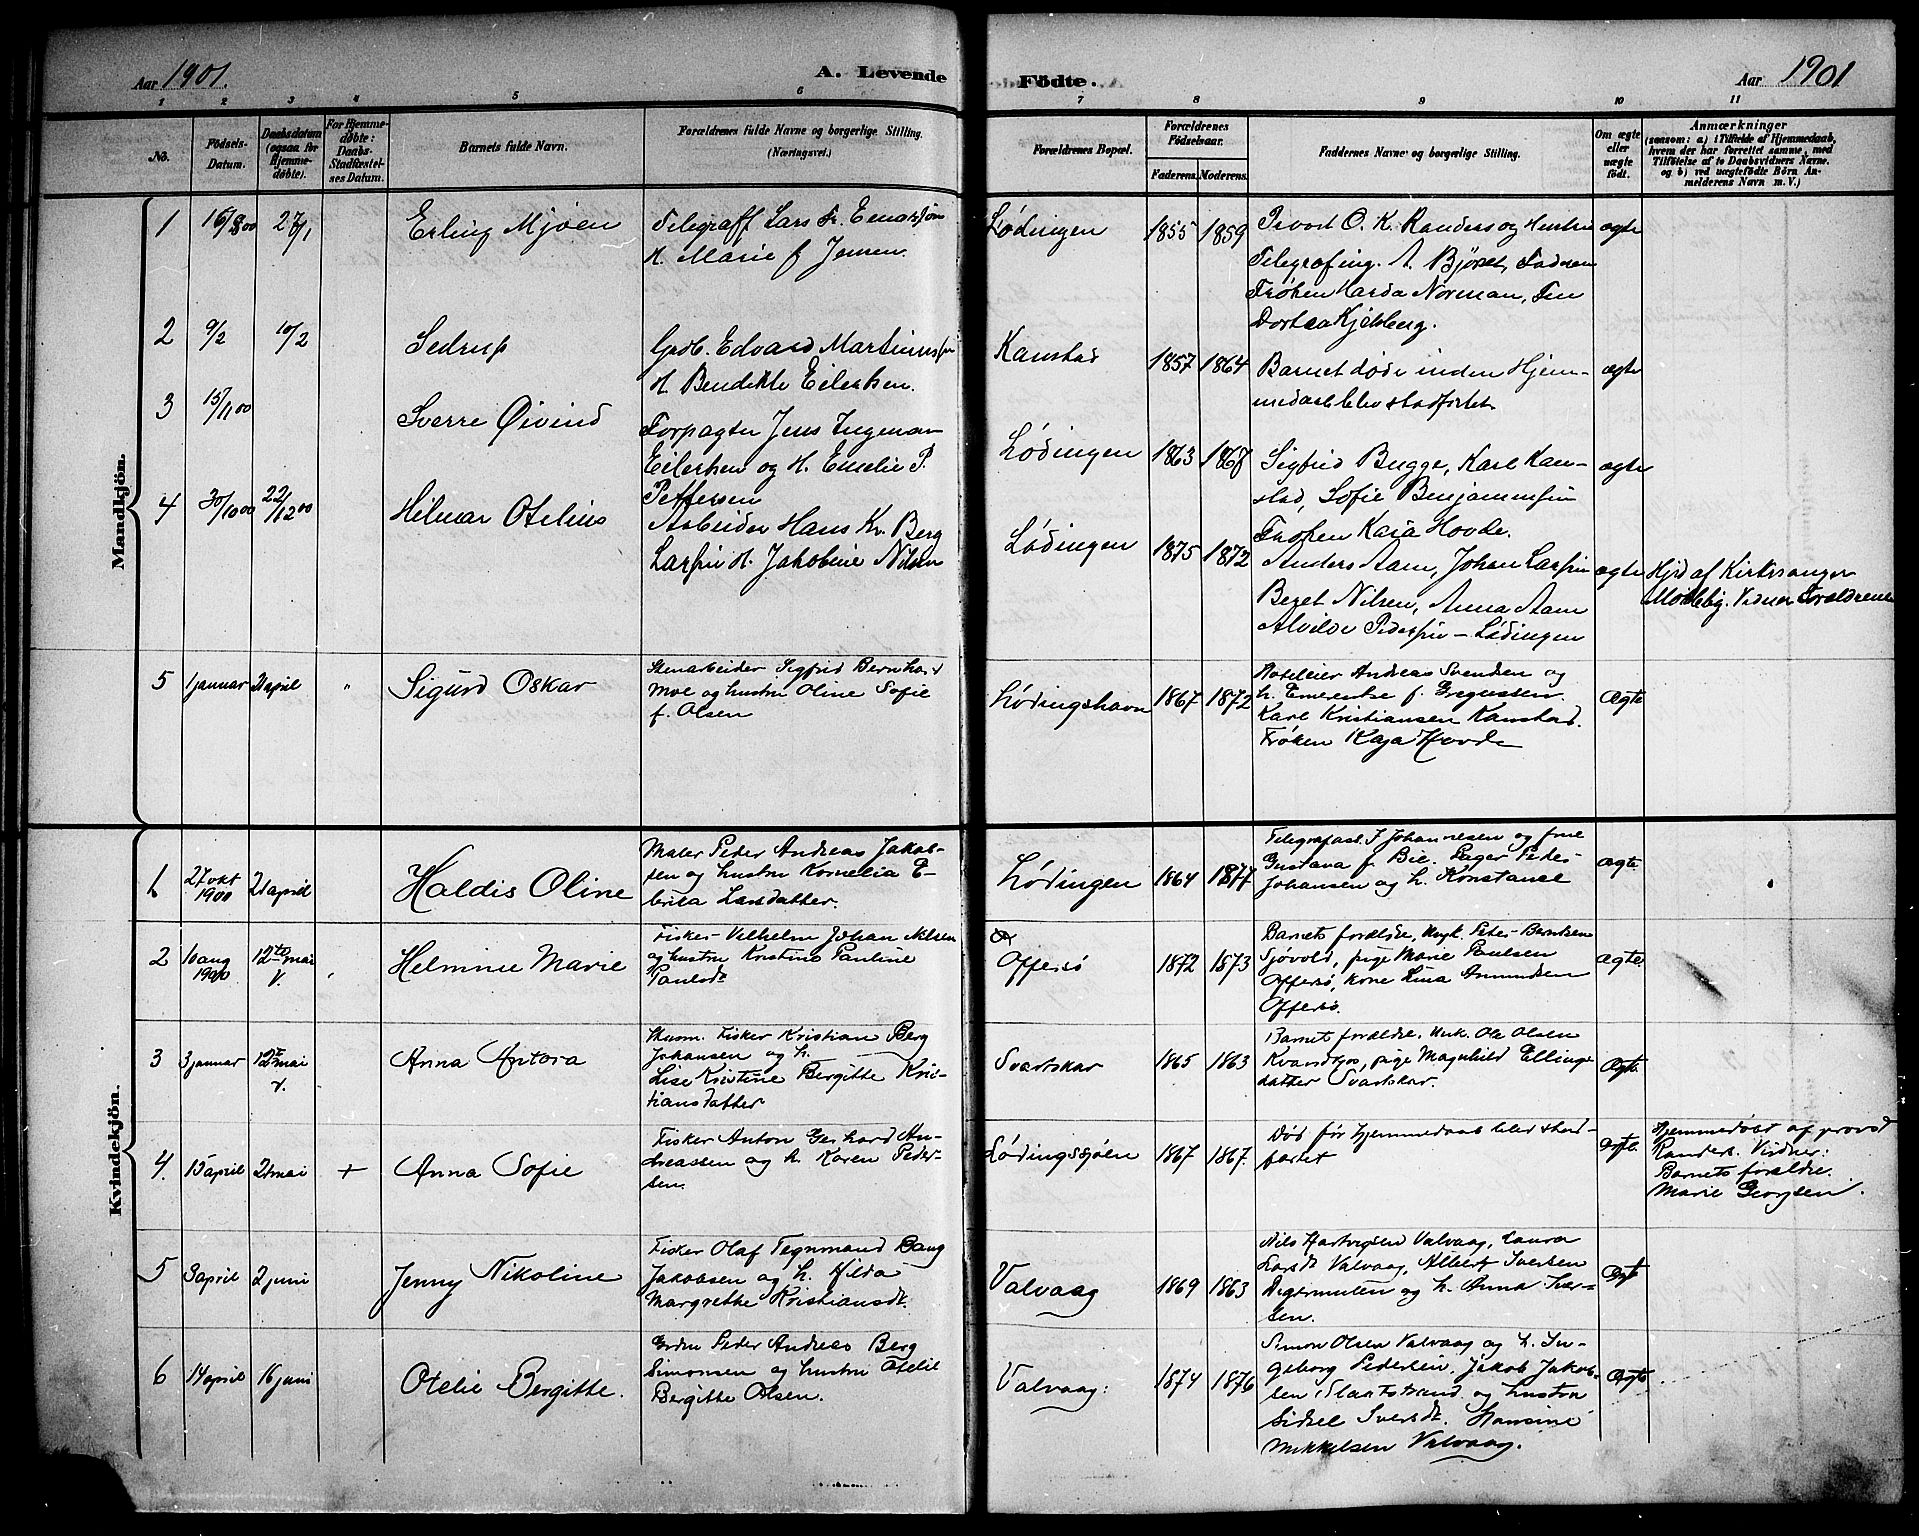 Aar 1901.
A. Levende
Födte.
Aar 1901
1 2 3 4 5 6 7 8 9 10 11
No.
Födsels-Datum.
Daabsdatum (ogsaa for Hjemme-döbte).
For Hjemme-döbte: Daabs-Stadfæstel-ses Datum.
Barnets fulde Navn.
Forældrenes fulde Navne og borgerlige Stilling.
(Næringsvei.)
Forældrenes Bopæl.
Forældrenes Födselsaar.
Faderens. Moderens.
Faddernes Navne og borgerlige Stilling.
Om ægte eller uægte födt.
Anmærkninger
(saasom: a) i Tilfælde af Hjemmedaab,
hvem der har forrettet samme, med
Tilföielse af to Daabsvidners Navne.
og b) ved uægtefödte Börn An-
melderens Navn m. V.)
Mandkjön.
1 16/8 00 27/1 Erling Mjøen
Telegraff Lars Fr.
H. Marie f Jensen.
Lødingen 1855 1859
Provst O. K. Randers og Hustru
Telegrafing. A. Bjørset,
Frøken Harda Norman,
Dortea Kjelsberg.
ægte
2 9/2 10/2 Sedrup
Grdb. Edvard Martinussen
H Bendikte Eilertsen.
Kanstad 1857 1864
Barnet døde inden Hjem-
medaab blev stadfæstet.
ægte
3 15/11 00 Sverre Øivind
Forpagter Jens Ingemar
Eilertsen og H. Emelie P.
Pettersen
Lødingen 1863 1867
Sigfrid Bugge, Karl Kan-
stad, Sofie Benjaminsen
Frøken Kaia Hovde.
ægte
4 30/10 00 22/12 00 Hilmar Otelius
Arbeider Hans Kr. Berg
Larsen H. Jakobine Nilsen
Lødingen 1875 1872
Anders Aam, Johan Larsen
Beret Nilsen, Anna Aam
Alvilde Pedersen - Lødingen
ægte
Hjd af Kirkesanger
Mollebg. Vidner Forældrene
5 1 januar 21 april " Sigurd Oskar
Stenarbeider Sigfrid Bernhard
Moe og hustru Oline Sofie
f. Olsen
Lødingshavn 1867 1872
Hoteleier Andreas Svendsen og
h. Emerentse f. Gregussen.
Karl Kristiansen Kanstad.
Frøken Kaja Hovde
Ægte
Kvindekjön.
1 27 okt 1900 21 april Haldis Oline
Maler Peder Andreas Jakob-
sen og hustru Kornelia E-
lerica Larsdatter.
Lødingen 1864 1877
Telegrafast. J Johannesen og frue
Gustava f. Bie. Lager Peder
Johansen og h. Konstanse
Ægte
2 10 aug 1900 12te mai V. Helmine Marie
Fisker Vilhelm Johan Nilsen
og hustru Kristine Pauline
Paulsdt
Offersø 1872 1873
Barnets forældre, Ungk. Peter Berntsen
Sjøvold, pige Marie Paulsen
Offersø, kone Lina Amundsen
Offersø.
Ægte.
3 3 januar 12te mai V. Anna Antora
Husm. Fisker Kristian Berg
Johansen og h.
Lise Kristine Bergitte Kris-
tiansdatter
Svartskar 1865 1863
Barnets forældre. Unk. Ole Olsen
Kvandkjos, pige Magnhild Ellings
datter Svartskar.
Ægte
4. 15 april 21 mai + Anna Sofie
Fisker Anton Gerhard An-
dreassen og h. Karen Peder-
sen.
Lødingssjøen 1867 1867.
Død før hjemmedaab blev stad
fæstet
Ægte.
Hjemmedøbt af provst
Randers. Vidner:
Barnets forældre.
Marie Georgsen.
5 3 april 2 juni Jenny Nikoline
Fisker Olaf Tegnmand Bang
Jakobsen og h. Hilda
Margrethe Kristiansdt.
Valvaag 1869 1863
Nils Hartvigsen Valvaag, Laura
Larsdt Valvaag, Albert Iversen
Digermulen og h. Anna Iver-
sen.
Ægt
6 14 april 16 juni Otelie Bergitte.
Grdm Peder Andreas Berg
Simonsen og hustru Otelie
Bergitte Olsen.
Valvaag: 1874 1876
Simon Olsen Valvaag og h. In-
geborg Pedersen. Jakob Jakob-
sen Slaatstrand og hustru
Sidsel Iversdt. Hansine
Mikkelsen Valvaag.
Ægte